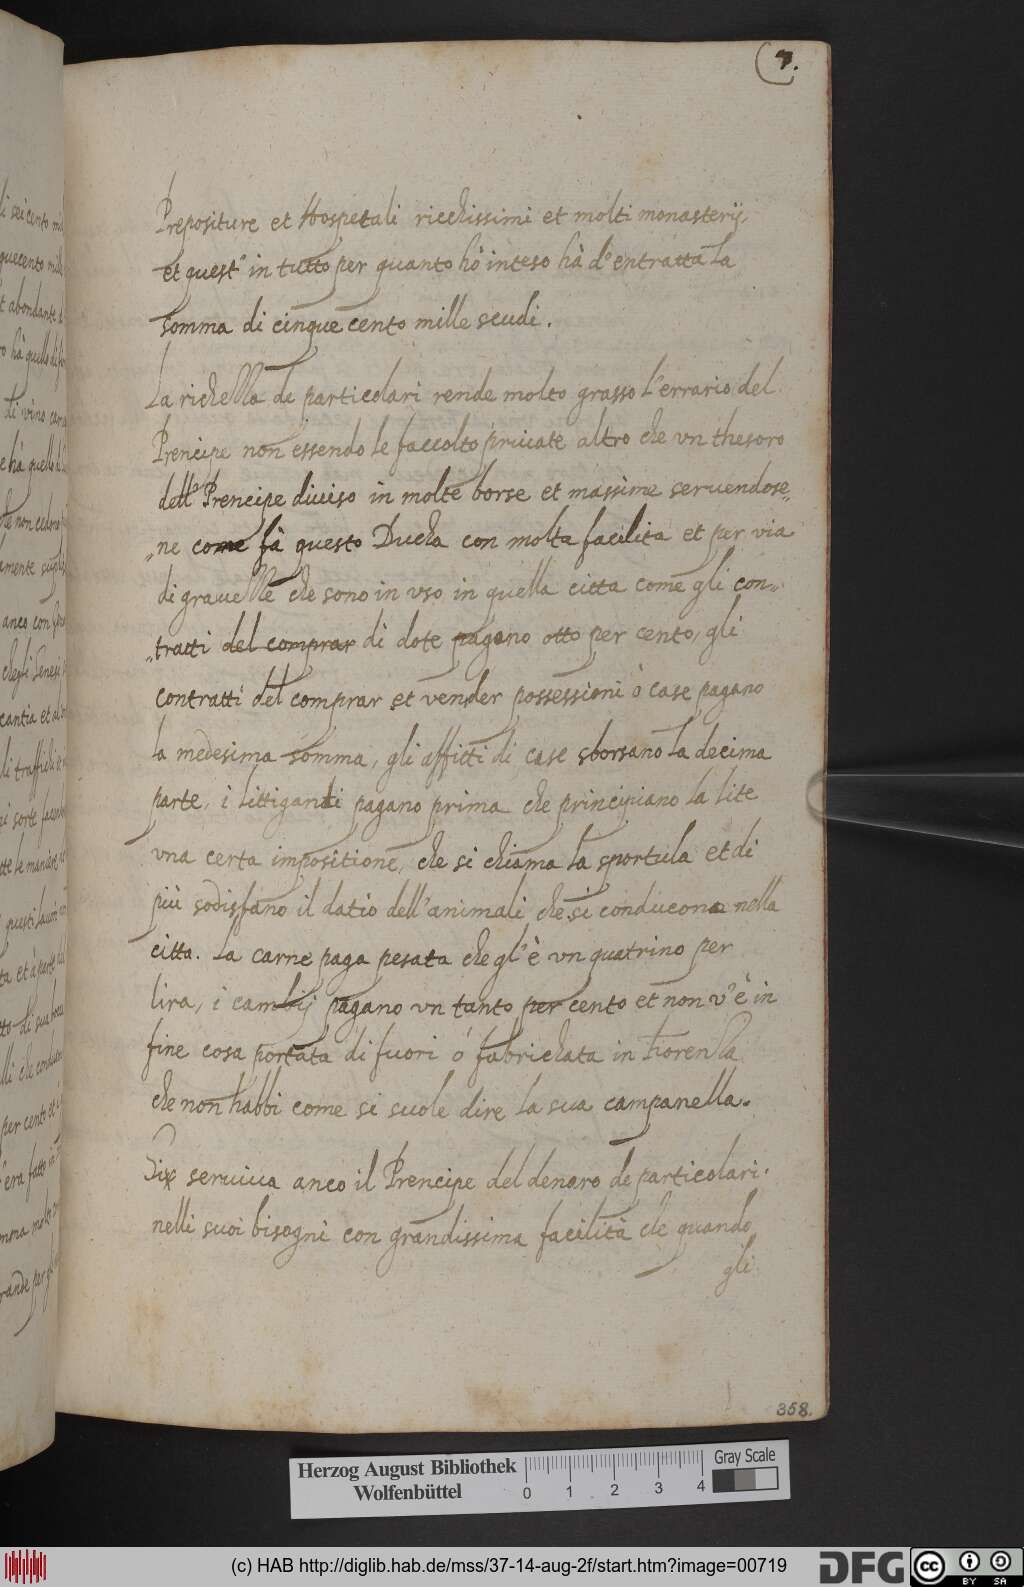 7.
Prepositure et Hospetali ricchissimi et molti monasterij,
et quest° in tutto per quanto hò inteso hà d'entratta la
somma di cinque cento mille scudi.
La richezza de particolari rende molto grasso l'errario del
Prencipe non essendo le faccolto priuate altro che vn thesoro
dell' Prencipe diuiso in molte borse et massime seruendose„
„ne come fà questo Ducha con molta facilita et per via
di grauezze che sono in vso in quella citta come gli con„
„tratti del comprar di dote pagano otto per cento, gli
contratti del comprar et vender possessioni ò case pagano
la medesima somma, gli affitti di case sborsano la decima
parte, i littiganti pagano prima che principiano la lite
vna certa impositione, che si chiama la sportula et di
più sodisfano il datio dell'animali che si conducono nella
citta. La carne paga pesata che gl'è vn quatrino per
lira, i cambij pagano vn tanto per cento et non v'è in
fine cosa portata di fuori ò fabrichata in Fiorenza
che non habbi come si suole dire la sua campanella.
seruiua anco il Prencipe del denaro de particolari
nelli suoi bisogni con grandissima facilità che quando
gli
358.
Herzog August Bibliothek
Wolfenbüttel
0 1 2 3 4
Gray Scale
(c) HAB http://diglib.hab.de/mss/37-14-aug-2f/start.htm?image=00719
DFG
cc BY SA